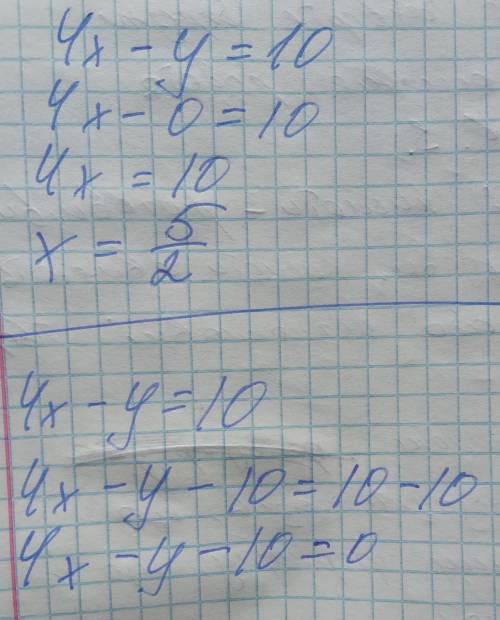 4x - y = 10
4x - 0 = 10
4x = 10
x = 5/2
4x - y = 10
4x - y - 10 = 10 - 10
4x - y - 10 = 0